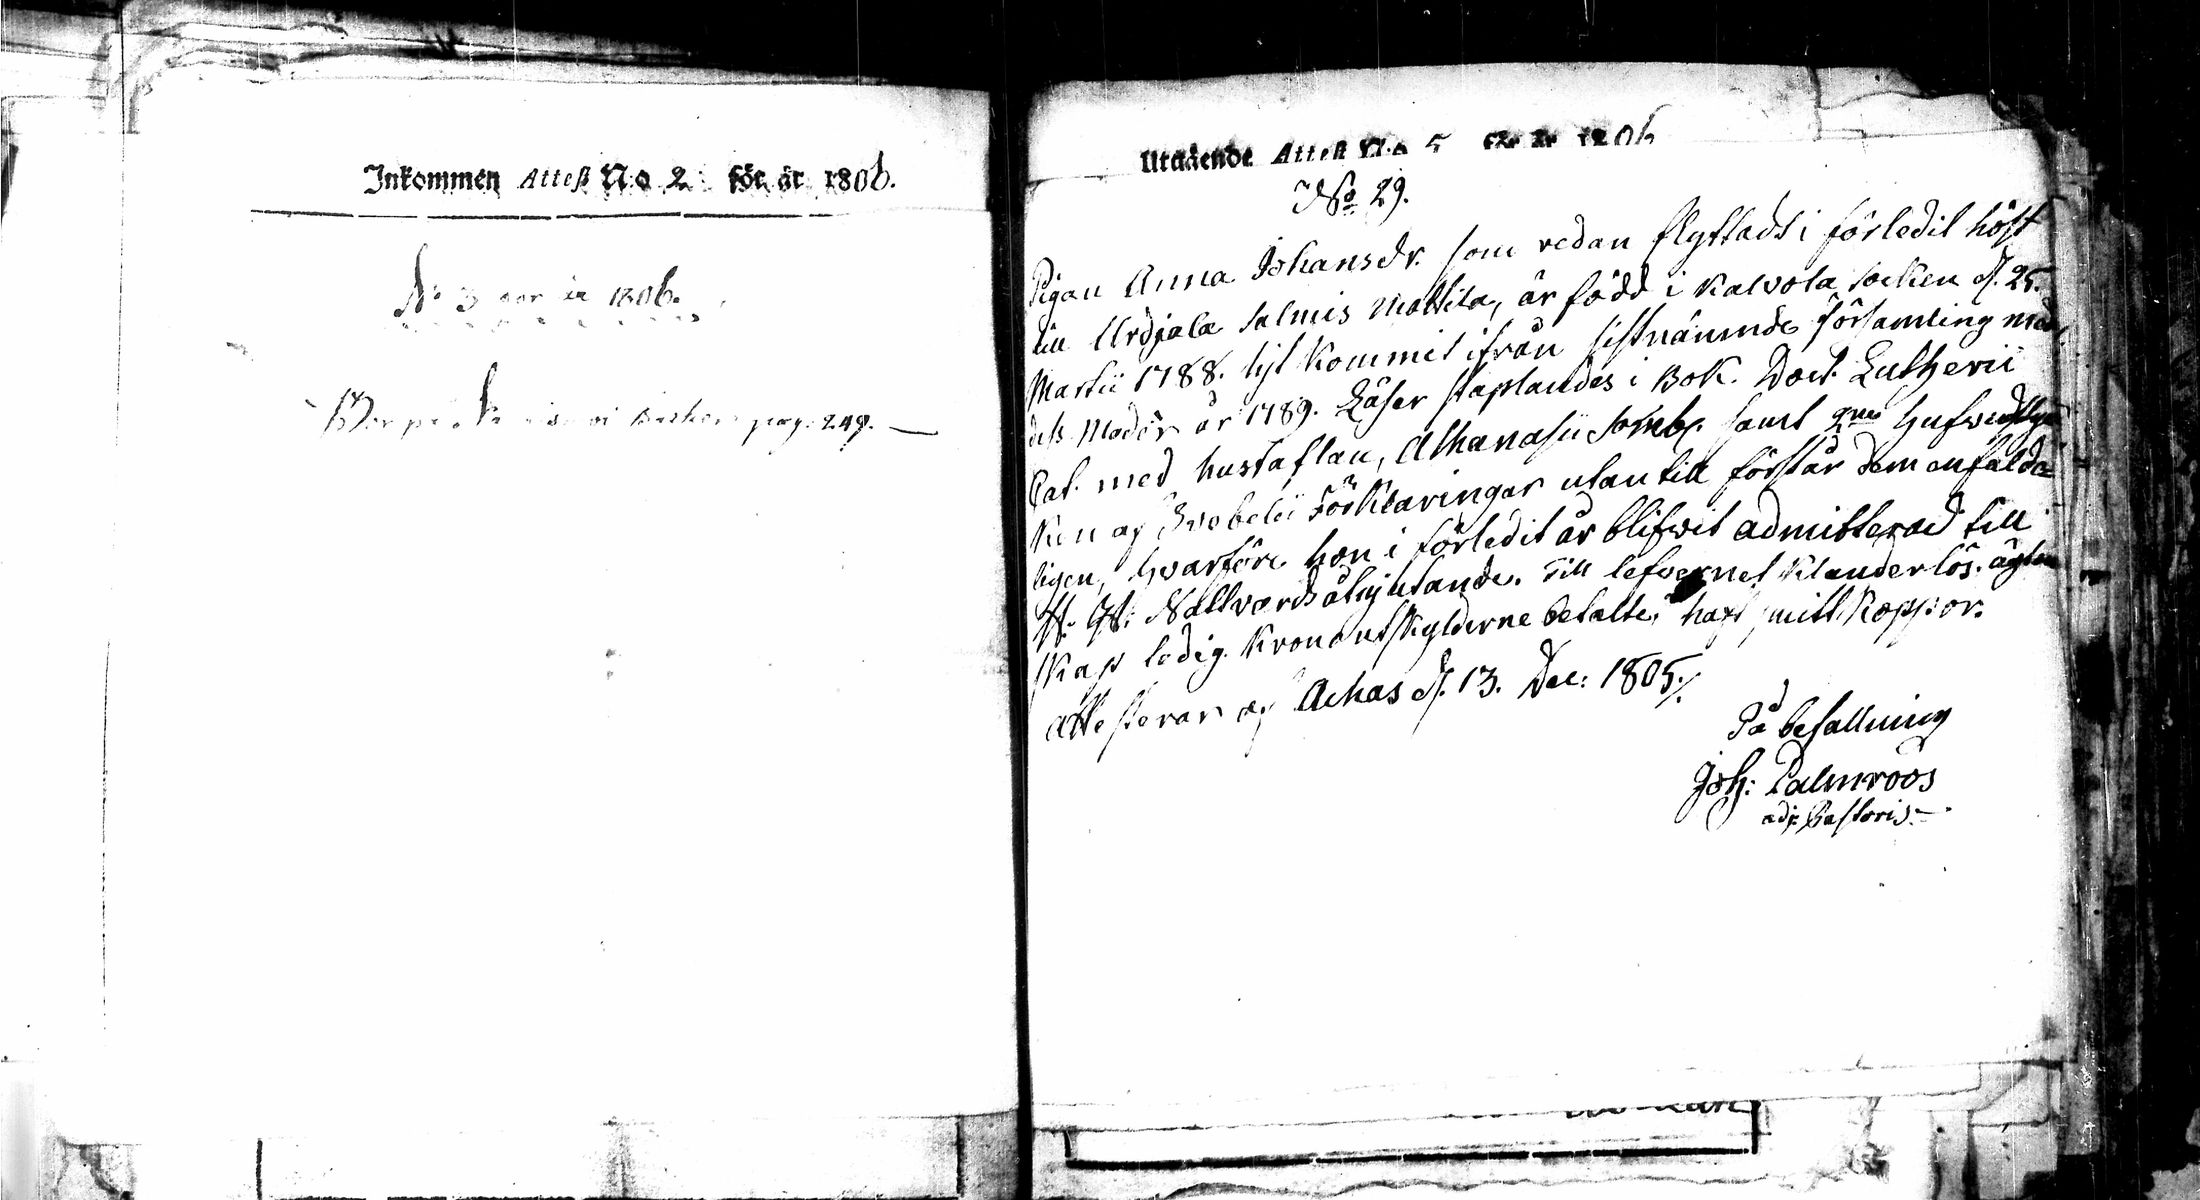 Inkommen Attest No 2 för år 1806.
No 3 för år 1806.
Bor på Barkens pag. 249.
Utgående Attest No 5 för år 1806
No 29.
Pigan Anna Johansdr. som redan flyttadt i förledit höst
till Urdjala Salmis Mattila, är född i Kalvola Socken d. 25.
Martii 1788. hit kommit ifrån sistnämnde Församling med
dess Moder år 1789. Läser staplandes i Bok. Doct. Lutherii
Cat. med hustaflan, Athanasii Symb. samt
ken af Svebelii Förklaringar utantill förstår dem enfalde
ligen, hvarföre hon i förledit år blifvit admitterad till
H. H. Nattvards åtnjutande. Till lefvernet klanderlös. ägten
skap ledig. Kronoutskylderne betalte, haft Koppor.
Attesterar af Achas d. 13. Dec: 1805./.
På befallning
Joh: Palmroos
adj: Pastoris.